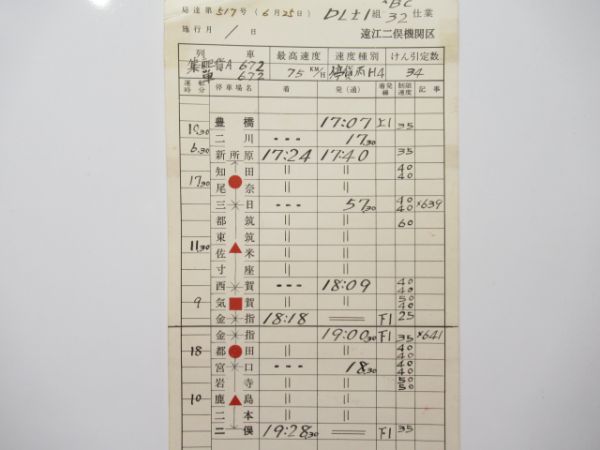 局達第517号(6月25日) DL±1組 32仕業
施行月 / 日 遠江二俣機関区
列車 最高速度 速度種別 けん引定数
672
672 75KM/H H4 34
運転時分 停車場名 着 発(通) 着発線 制限速度 記事
豊橋 17:07 上1 35
10.30
二川 --- 17.30
6.30
新所原 17:24 17:40 35
知田 || || 40
40
17.30
尾奈 || ||
三ケ日 --- 57.30 40 ×639
40
都筑 || || 60
東筑 || ||
11.30
佐米 || ||
寸座 || ||
西賀 --- 18:09 40
40
9
気賀 || || 50
40
金指 18:18 == 下1 25
金指 19:00.30 下1 35 ×641
18
都田 || || 40
40
宮口 --- 18.30 40
40
岩寺 || || 50
10
鹿島 || || 50
二本 || ||
二俣 19:28.30 == 下1 35